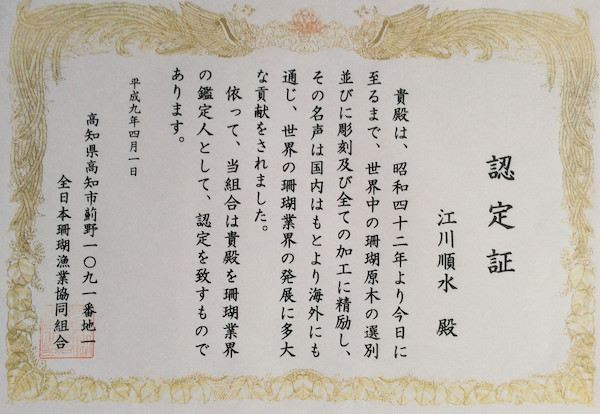 認定証
江川順水 殿
貴殿は、昭和四十二年より今日に
至るまで、世界中の珊瑚原木の選別
並びに彫刻及び全ての加工に精励し、
その名声は国内はもとより海外にも
通じ、世界の珊瑚業界の発展に多大
な貢献をされました。
依って、当組合は貴殿を珊瑚業界
の鑑定人として、認定を致すもので
あります。
平成九年四月一日
高知県高知市薊野一〇九一番地一
全日本珊瑚漁業協同組合